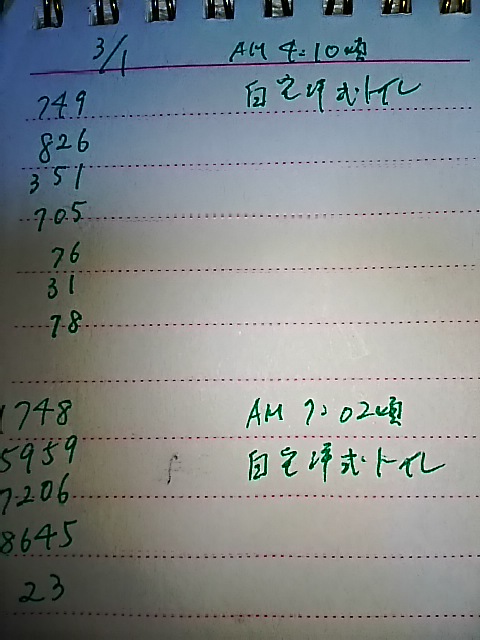 3/1 AM 4:10頃
749 自宅洋式トイレ
826
351
705
76
31
78
1748 AM 7:02頃
5959 自宅洋式トイレ
7206
8645
23